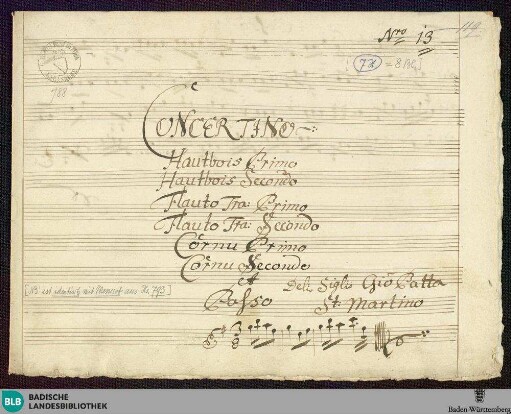 Nro 13
119
[ 72 = 8 Bl. ]
788
CONCERTINO
Hautbois Primo
Hautbois Secondo
Flauto Tra: Primo
Flauto Tra: Secondo
Cornu Primo
Cornu Secondo
et
Basso
Dell Sigre Gio Batta
St: Martino
[ No 3 ist identisch mit Menuet aus No 793 ]
BLB BADISCHE
LANDESBIBLIOTHEK
Baden-Württemberg